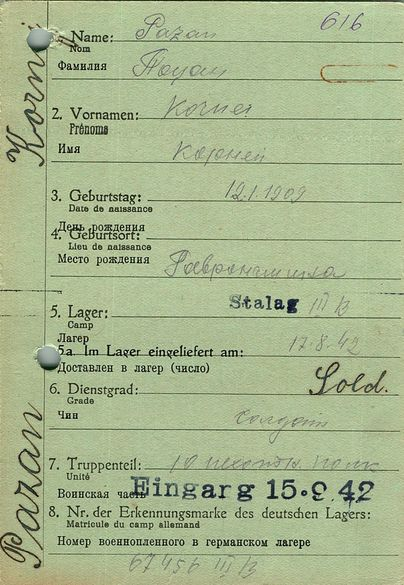 616
1. Name: Pazan
Nom
Фамилия
2. Vornamen: Kornei
Prénoms
Имя Корней
3. Geburtstag: 12.1.1909
Date de naissance
День рождения
4. Geburtsort:
Lieu de naissance
Место рождения
5. Lager: Stalag III B
Camp
Лагер
5a. Im Lager eingeliefert am: 17.8.42
Доставлен в лагер (число)
6. Dienstgrad: Sold.
Grade
Чин Солдат
7. Truppenteil: 10 полк
Unité
Воинская часть Eingarg 15.9.42
8. Nr. der Erkennungsmarke des deutschen Lagers:
Matricule du camp allemand
Номер военнопленного в германском лагере
67456 III B
Pazan Korn